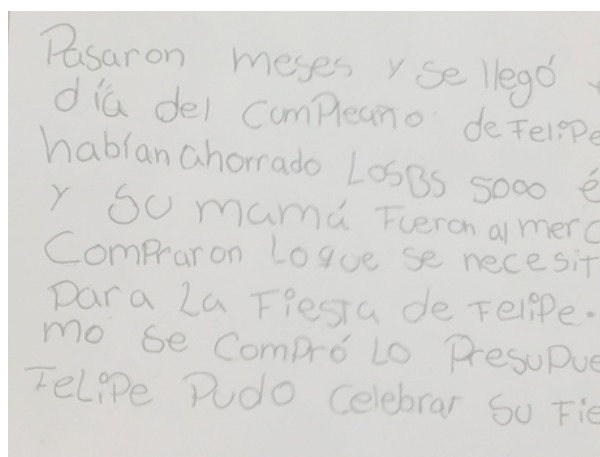 Pasaron meses y se llegó
día del cumpleaño de Felipe
habían ahorrado LosBs 5000 é
y su mamá Fueron al merc
Compraron Loque se necesit
para La Fiesta de Felipe.
mo se compró Lo Presupue
Felipe Pudo celebrar su Fie